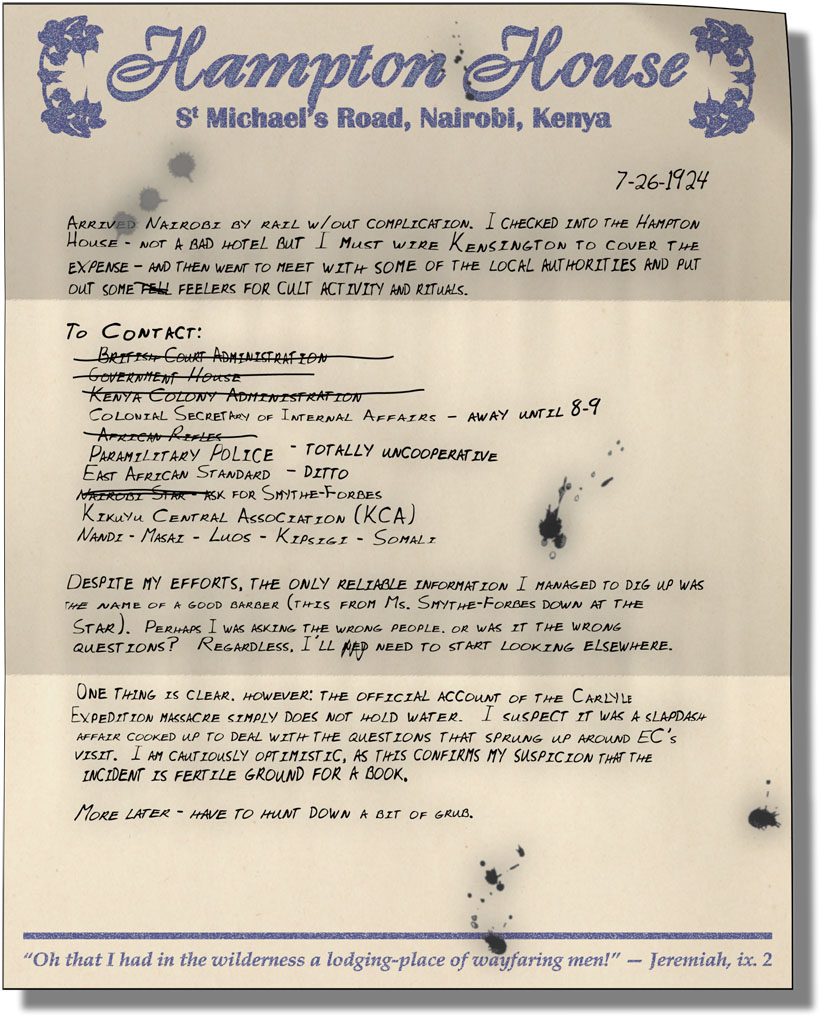 Hampton House
St Michael's Road, Nairobi, Kenya
7-26-1924
ARRIVED NAIROBI BY RAIL W/OUT COMPLICATION. I CHECKED INTO THE HAMPTON
HOUSE - NOT A BAD HOTEL BUT I MUST WIRE KENSINGTON TO COVER THE
EXPENSE - AND THEN WENT TO MEET WITH SOME OF THE LOCAL AUTHORITIES AND PUT
OUT SOME FELL FEELERS FOR CULT ACTIVITY AND RITUALS.
TO CONTACT:
BRITISH COURT ADMINISTRATION
GOVERNMENT HOUSE
KENYA COLONY ADMINISTRATION
COLONIAL SECRETARY OF INTERNAL AFFAIRS - AWAY UNTIL 8-9
AFRICAN RIFLES
PARAMILITARY POLICE - TOTALLY UNCOOPERATIVE
EAST AFRICAN STANDARD - DITTO
NAIROBI STAR - ASK FOR SMYTHE-FORBES
KIKUYU CENTRAL ASSOCIATION (KCA)
NANDI - MASAI - LUOS - KIPSIGI - SOMALI
DESPITE MY EFFORTS, THE ONLY RELIABLE INFORMATION I MANAGED TO DIG UP WAS
THE NAME OF A GOOD BARBER (THIS FROM MS. SMYTHE-FORBES DOWN AT THE
STAR). PERHAPS I WAS ASKING THE WRONG PEOPLE. OR WAS IT THE WRONG
QUESTIONS? REGARDLESS, I'LL NEED TO START LOOKING ELSEWHERE.
ONE THING IS CLEAR, HOWEVER: THE OFFICIAL ACCOUNT OF THE CARLYLE
EXPEDITION MASSACRE SIMPLY DOES NOT HOLD WATER. I SUSPECT IT WAS A SLAPDASH
AFFAIR COOKED UP TO DEAL WITH THE QUESTIONS THAT SPRUNG UP AROUND EC'S
VISIT. I AM CAUTIOUSLY OPTIMISTIC, AS THIS CONFIRMS MY SUSPICION THAT THE
INCIDENT IS FERTILE GROUND FOR A BOOK.
MORE LATER - HAVE TO HUNT DOWN A BIT OF GRUB.
"Oh that I had in the wilderness a lodging-place of wayfaring men!" — Jeremiah, ix. 2